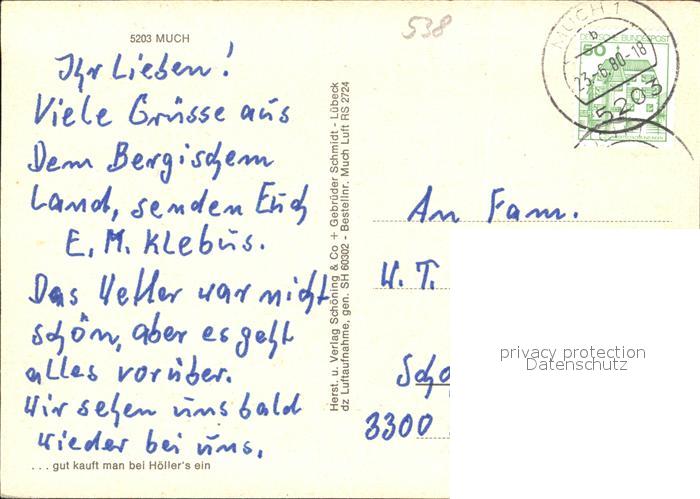 5203 MUCH
538
Ihr Lieben!
Viele Grüsse aus
Dem Bergischem
Land, senden Euch
E. M. Klebus.
Das Wetter war nicht
schön, aber es geht
alles vorüber.
Wir sehen uns bald
wieder bei uns.
... gut kauft man bei Höller's ein
Herst. u. Verlag Schöning & Co + Gebrüder Schmidt - Lübeck
dz Luftaufnahme, gen. SH 60302 - Bestellnr. Much Luft RS 2724
MUCH 1
b
23.-6.80-18
5203
DEUTSCHE BUNDESPOST
50
An Fam.
W. T.
3300
privacy protection
Datenschutz